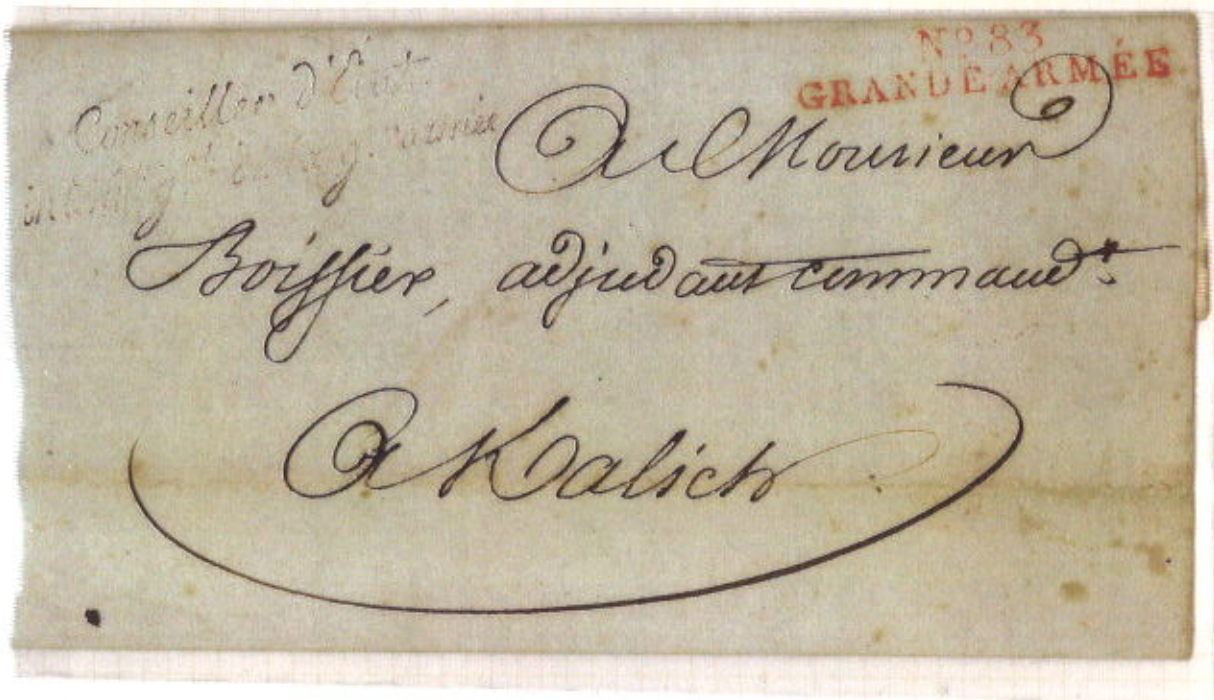 Conseiller d'État
intend.t g.l de la g. armée
No 83
GRANDE ARMÉE
A Monsieur
Boissier, adjudant command.t
A Kalisch